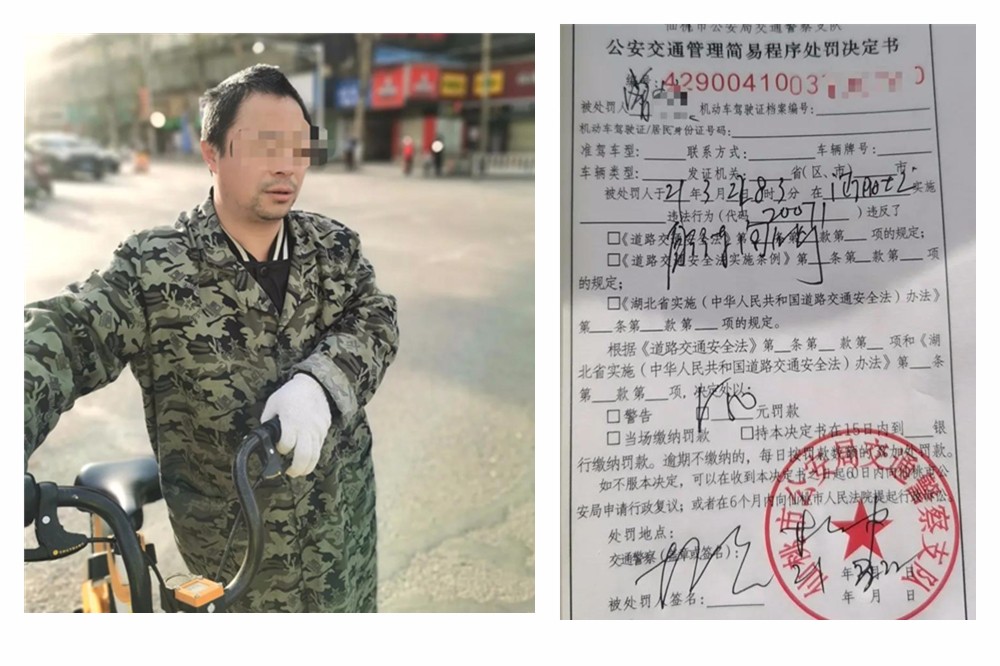 仙桃市公安局交通警察支队
公安交通管理简易程序处罚决定书
编号:4290041003
被处罚人 机动车驾驶证档案编号:
机动车驾驶证/居民身份证号码:
准驾车型: 联系方式: 车辆牌号:
车辆类型: 发证机关: 省(区、市) 市
被处罚人于21年3月21日8时3分 在 实施
违法行为(代码 20071 )违反了
□《道路交通安全法》第 条第 款第 项的规定;
□《道路交通安全法实施条例》第 条第 款第 项
的规定;
□《湖北省实施〈中华人民共和国道路交通安全法〉办法》
第 条第 款第 项的规定。
根据《道路交通安全法》第 条第 款第 项和《湖
北省实施〈中华人民共和国道路交通安全法〉办法》第 条
第 款第 项,决定处以:
□警告 □ 50 元罚款
□当场缴纳罚款 □持本决定书在15日内到 银
行缴纳罚款。逾期不缴纳的,每日按罚款数额的3%加处罚款。
如不服本决定,可以在收到本决定书之日起60日内向仙桃市公
安局申请行政复议;或者在6个月内向仙桃市人民法院提起行政诉讼。
处罚地点:
交通警察(盖章或签名):
21年3月22日
被处罚人签名: 年 月 日
仙桃市公安局交通警察支队